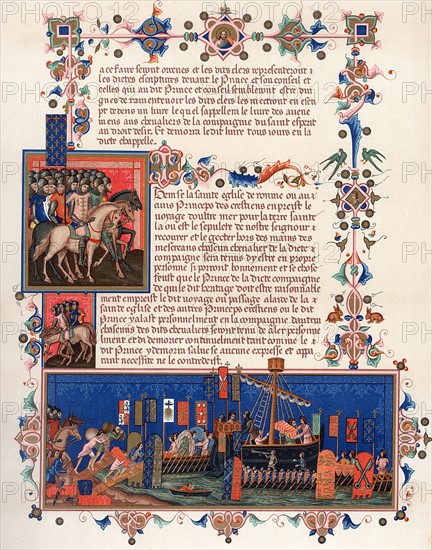 a ce faire seront oncques et les dits clers representeront
les dictes escriptures devant le Prince et son conseil et
celles qui au dit Prince et conseil sembleront estre di
gnes de ramentenoir les dits clers mectront en escri
pt dedens un livre le quel sappellera le livre des avene
mens aus chevaliers de la compaignie du saint esprit
au droit desir. Et demorra le dit livre tous iours en la
dicte chappelle.
Item se la sainte eglise de romme ou au
cuns Princeps des crestiens enpreist le
voyage doultre mer pour la terre sainte
la ou est le sepulcre de nostre seignour
recourer et le gecter hors des mains des
mescreans chascun chevalier de la dicte
compaignie sera tenus dy estre en propre
personne si porront bonnement et se chose
feust que le Prince de la dicte compaignie
de qui le dit heritage doit estre raisonnable
ment empreist le dit voyage ou passage a laide de la
sainte eglise et des autres Princeps crestiens ou le dit
Prince y alast personnelment en la compaignie dautrui
chascuns des dits chevaliers seront tenus de aler personne
lment et di demorer continuelment tant comme le
dit Prince y demorra salve se aucune expresse et appa
rant necessite ne le contredeist.